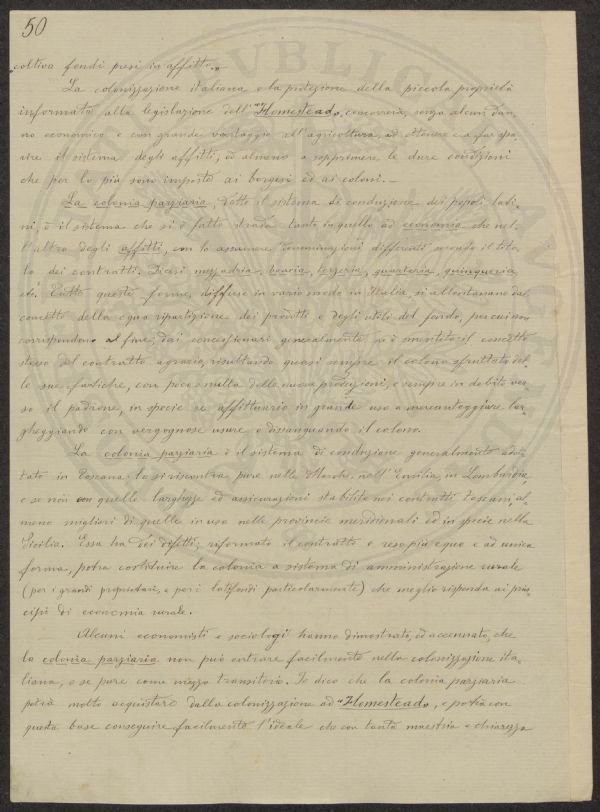 50
coltiva fondi presi in affitto.
La colonizzazione italiana e la protezione della piccola proprietà
informata alla legislazione dell'"Homestead", concorrerà, senza alcun dan-
no economico e con grande vantaggio all'agricoltura, ad ottenere e a far spa-
rire il sistema degli affitti, od almeno a sopprimere le dure condizioni
che per lo più sono imposte ai borgesi ed ai coloni.–
La colonia parziaria, detto il sistema di conduzione dei popoli lati-
ni, è il sistema che si è fatto strada tanto in quello ad economia che nel-
l'altro degli affitti, con lo assumere denominazioni differenti secondo il tito-
lo dei contratti. Dicesi mezzadria, boaria, terzeria, quarteria, quinqueria,
etc. Tutte queste forme, diffuse in vario modo in Italia, si allontanano dal
concetto della equa ripartizione dei prodotti e degli utili del fondo, per cui non
corrispondono al fine, dai concessionari generalmente, se è mentito il concetto
stesso del contratto agrario, risultando quasi sempre il colono sfruttato del-
le sue fatiche, con poco o nulla della nuova produzione, e sempre in debito ver-
so il padrone, in specie se affittuario in grande uso a mercanteggiare lar-
gheggiando con vergognose usure e dissanguando il colono.
La colonia parziaria è il sistema di conduzione generalmente adot-
tato in Toscana: lo si riscontra pure nelle Marche, nell'Emilia, in Lombardia,
e se non con quelle larghezze ed assicurazioni stabilite nei contratti toscani, al-
meno migliori di quelle in uso nelle provincie meridionali ed in specie nella
Sicilia. Essa ha dei difetti; riformato il contratto e reso più equo e ad unica
forma, potrà costituire la colonia a sistema di amministrazione rurale
(per i grandi proprietari, e per i latifondi particolarmente) che meglio risponda ai prin-
cipii di economia rurale.
Alcuni economisti e sociologi hanno dimostrato, od accennato, che
la colonia parziaria non può entrare facilmente nella colonizzazione ita-
liana, e se pure come mezzo transitorio. Io dico che la colonia parziaria
potrà molto acquistare dalla colonizzazione ad "Homestead", e potrà con
questa base conseguire facilmente l'ideale che con tanta maestria e chiarezza